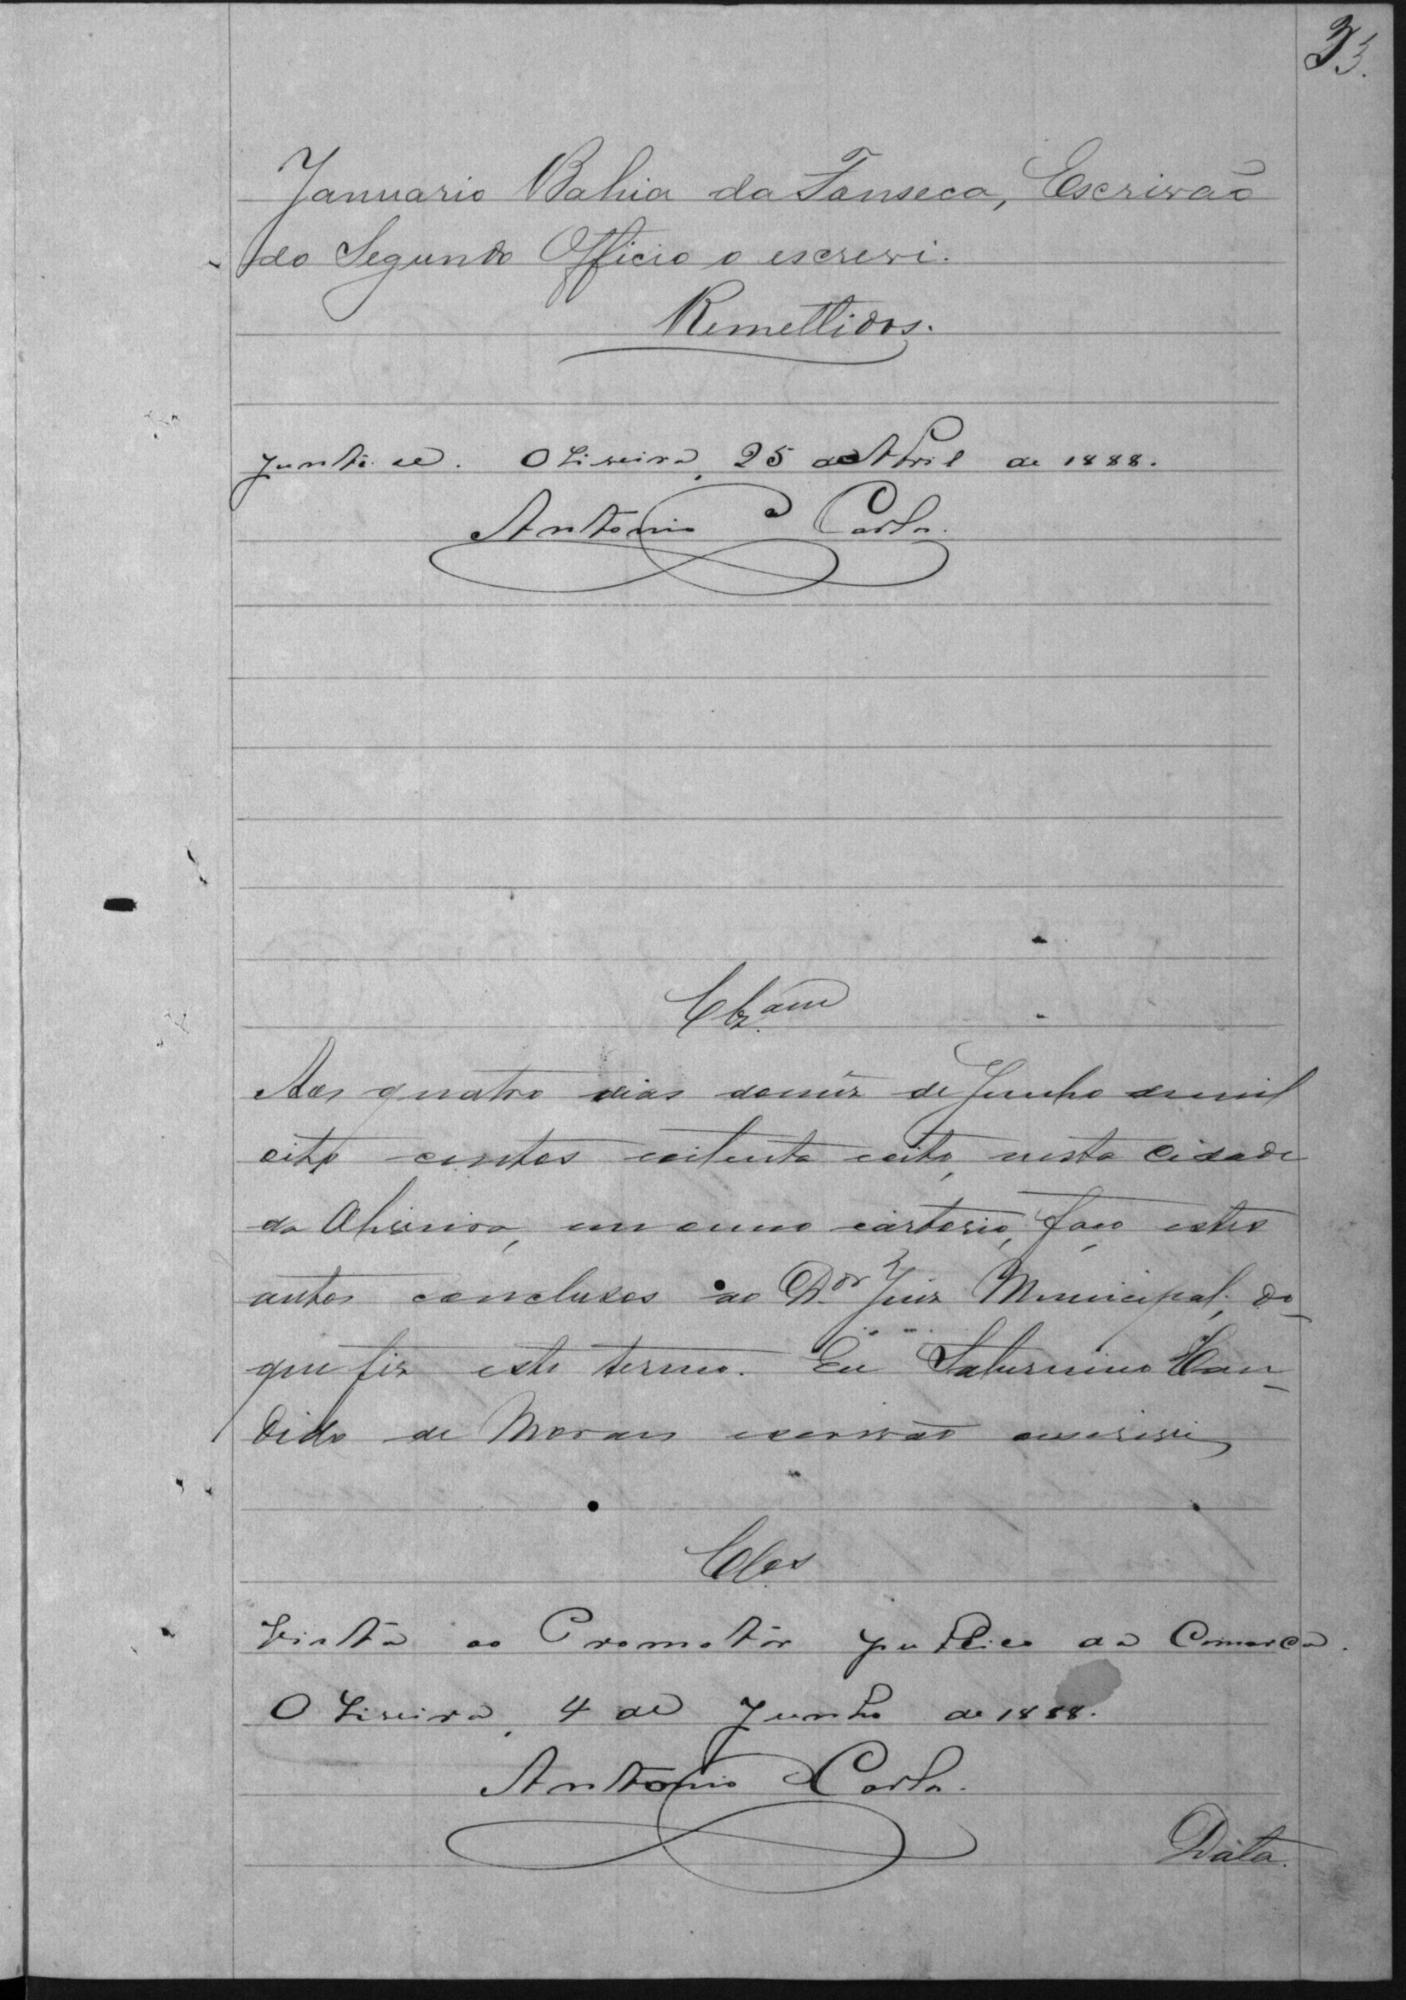 33.
Januario Bahia da Fonseca, Escrivão
do Segundo Officio o escrevi.
Remettidos.
Junte-se. Oliveira, 25 de Abril de 1888.
Antonio Carlos.
Clzam
Aos quatro dias do mez de Junho de mil
oito centos e oitenta e oito, nesta Cidade
da Oliveira, em o meu cartorio, faço estes
autos conclusos ao Dor Juiz Municipal, do
que fiz este termo. Eu Saturnino Can-
dido de Moraes escrivão o escrevi
Clos
Vista ao Promotor publico da Comarca.
Oliveira, 4 de Junho de 1888.
Antonio Carlos.
Data.